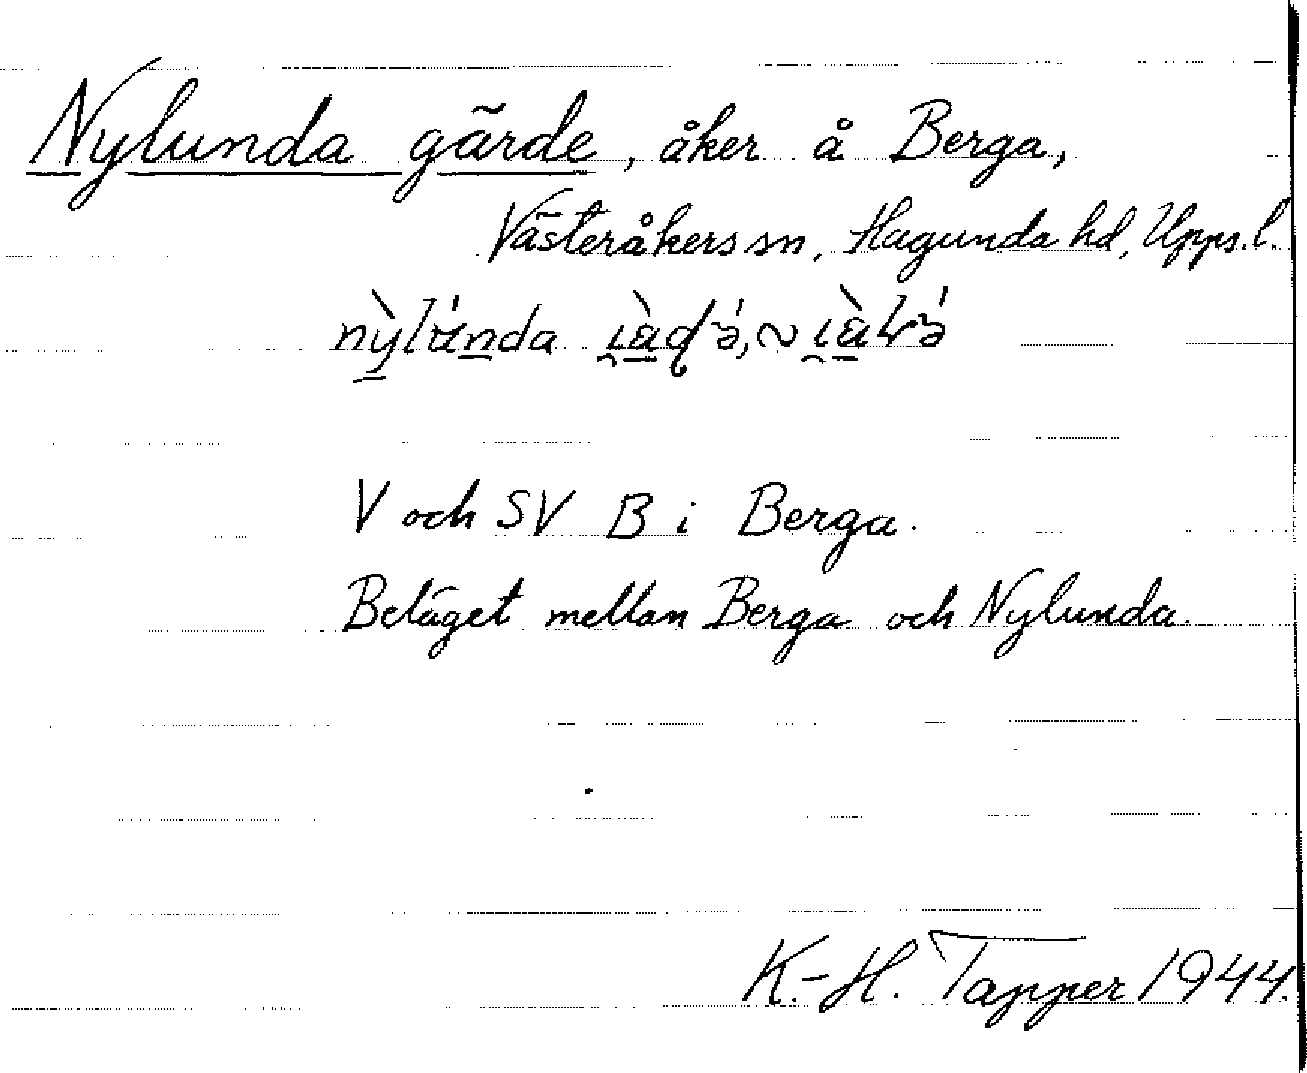 Nylunda gärde, åker å Berga,
Västeråkers sn, Hagunda hd, Upps. l.
V och SV B i Berga.
Beläget mellan Berga och Nylunda.
K.-H. Tapper 1944.